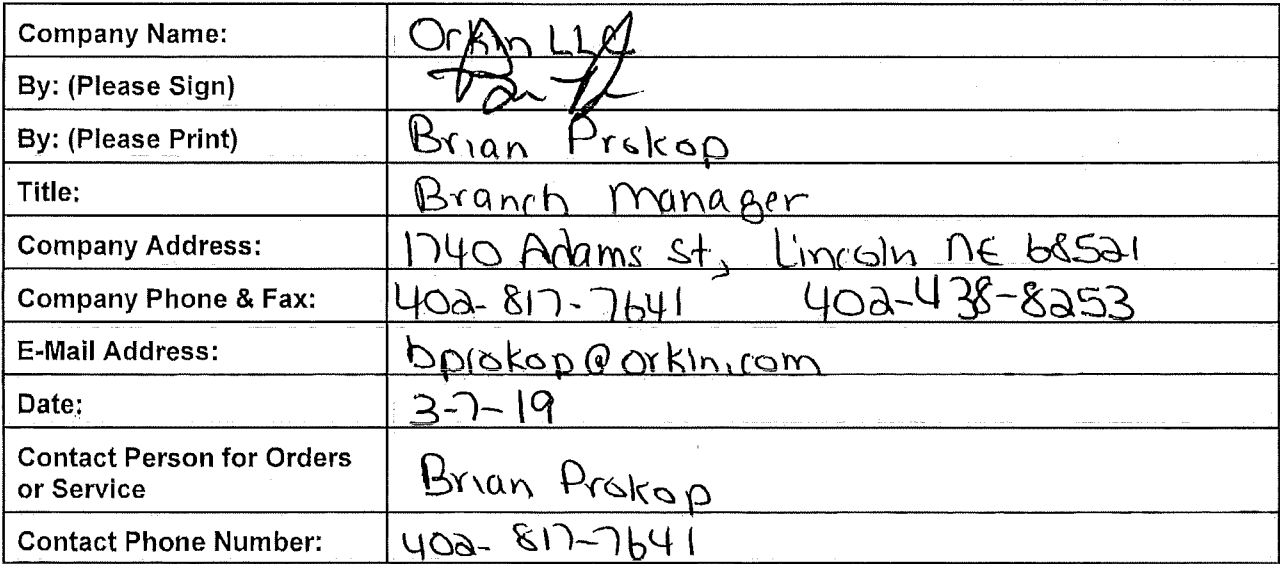 Company Name: Orkin LLC
By: (Please Sign)
By: (Please Print) Brian Prokop
Title: Branch Manager
Company Address: 1740 Adams St, Lincoln NE 68521
Company Phone & Fax: 402-817-7641 402-438-8253
E-Mail Address: bprokop@orkin.com
Date: 3-7-19
Contact Person for Orders
or Service Brian Prokop
Contact Phone Number: 402-817-7641